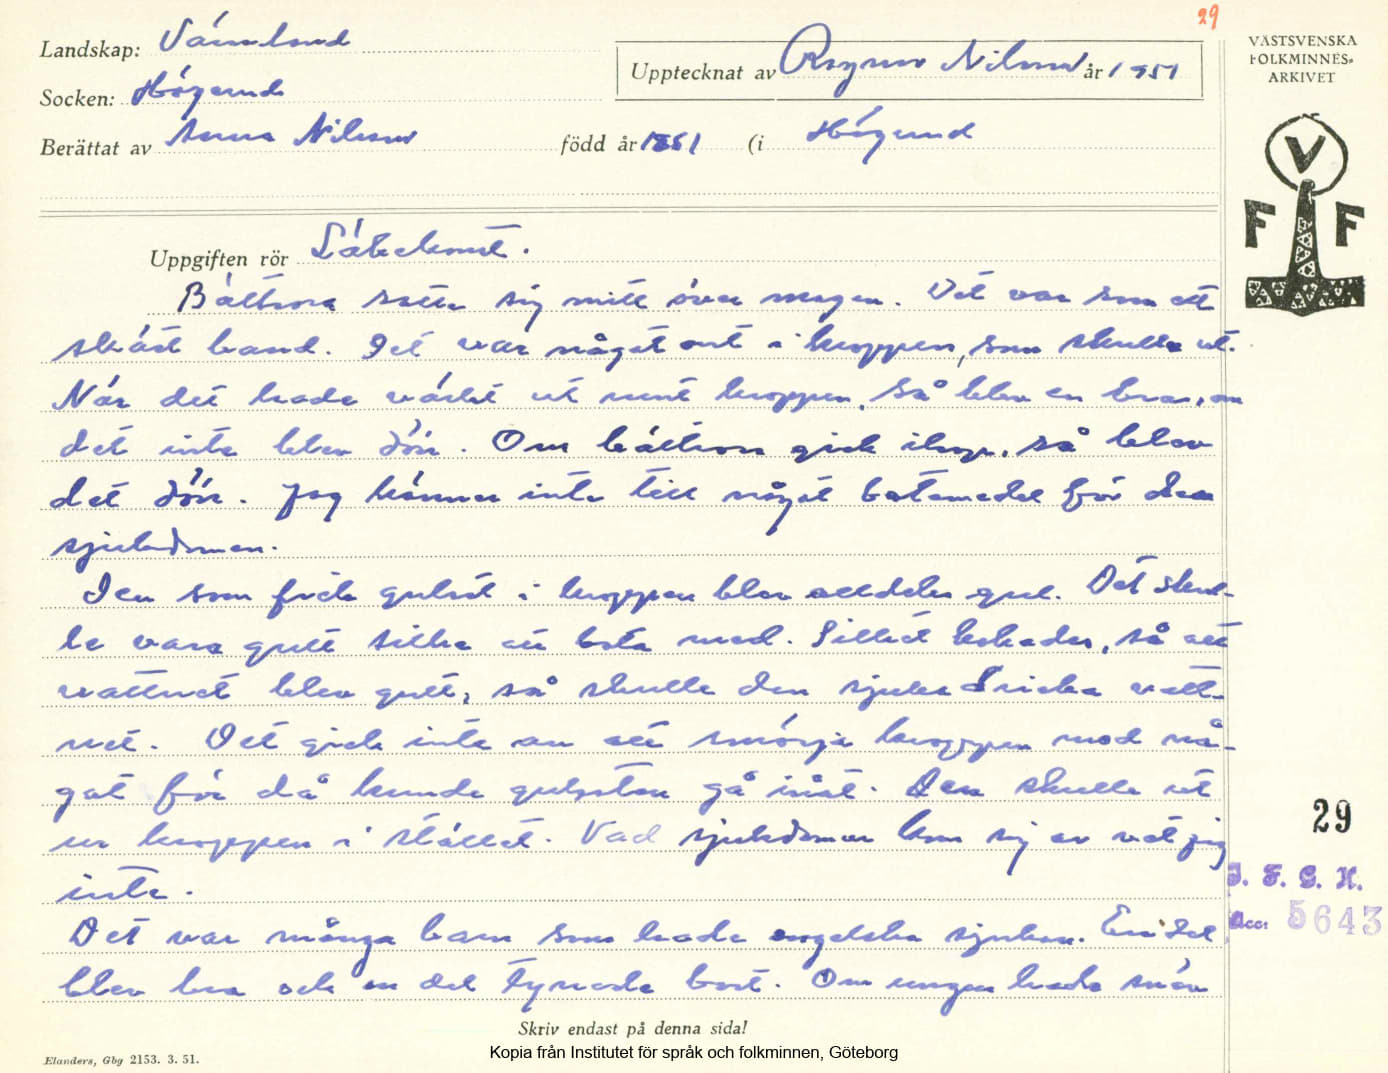 29
Landskap: Värmland
Upptecknat av Ragnar Nilsson år 1951
VÄSTSVENSKA
FOLKMINNES-
ARKIVET
Socken: Högerud
Berättat av Anna Nilsson född år 1861 (i Högerud
V
F F
Uppgiften rör Läkekonst.
Bältrosa satte sig mitt över magen. Det var som ett
skärt band. Det var något ont i kroppen, som skulle ut.
När det hade värkt ut runt kroppen, så blev en bra, om
det inte blev dön. Om bältrosn gick ihop, så blev
det dön. Jag känner inte till något botemedel för den
sjukdomen.
Den som fick gulsot i kroppen blev alldeles gul. Det skul-
le vara gult silke att bota med. Silket kokades, så att
vattnet blev gult, så skulle den sjuke dricka vatt-
net. Det gick inte an att smörja kroppen med nå-
got för då kunde gulsoten gå inåt. Den skulle ut
ur kroppen i stället. Vad sjukdomen kom sig av vet jag
inte.
Det var många barn som hade engelska sjukan. En del
blev bra och en del tynade bort. Om ungen hade
29
I. F. G. H.
Acc: 5643
Skriv endast på denna sida!
Elanders, Gbg 2153. 3. 51.
Kopia från Institutet för språk och folkminnen, Göteborg